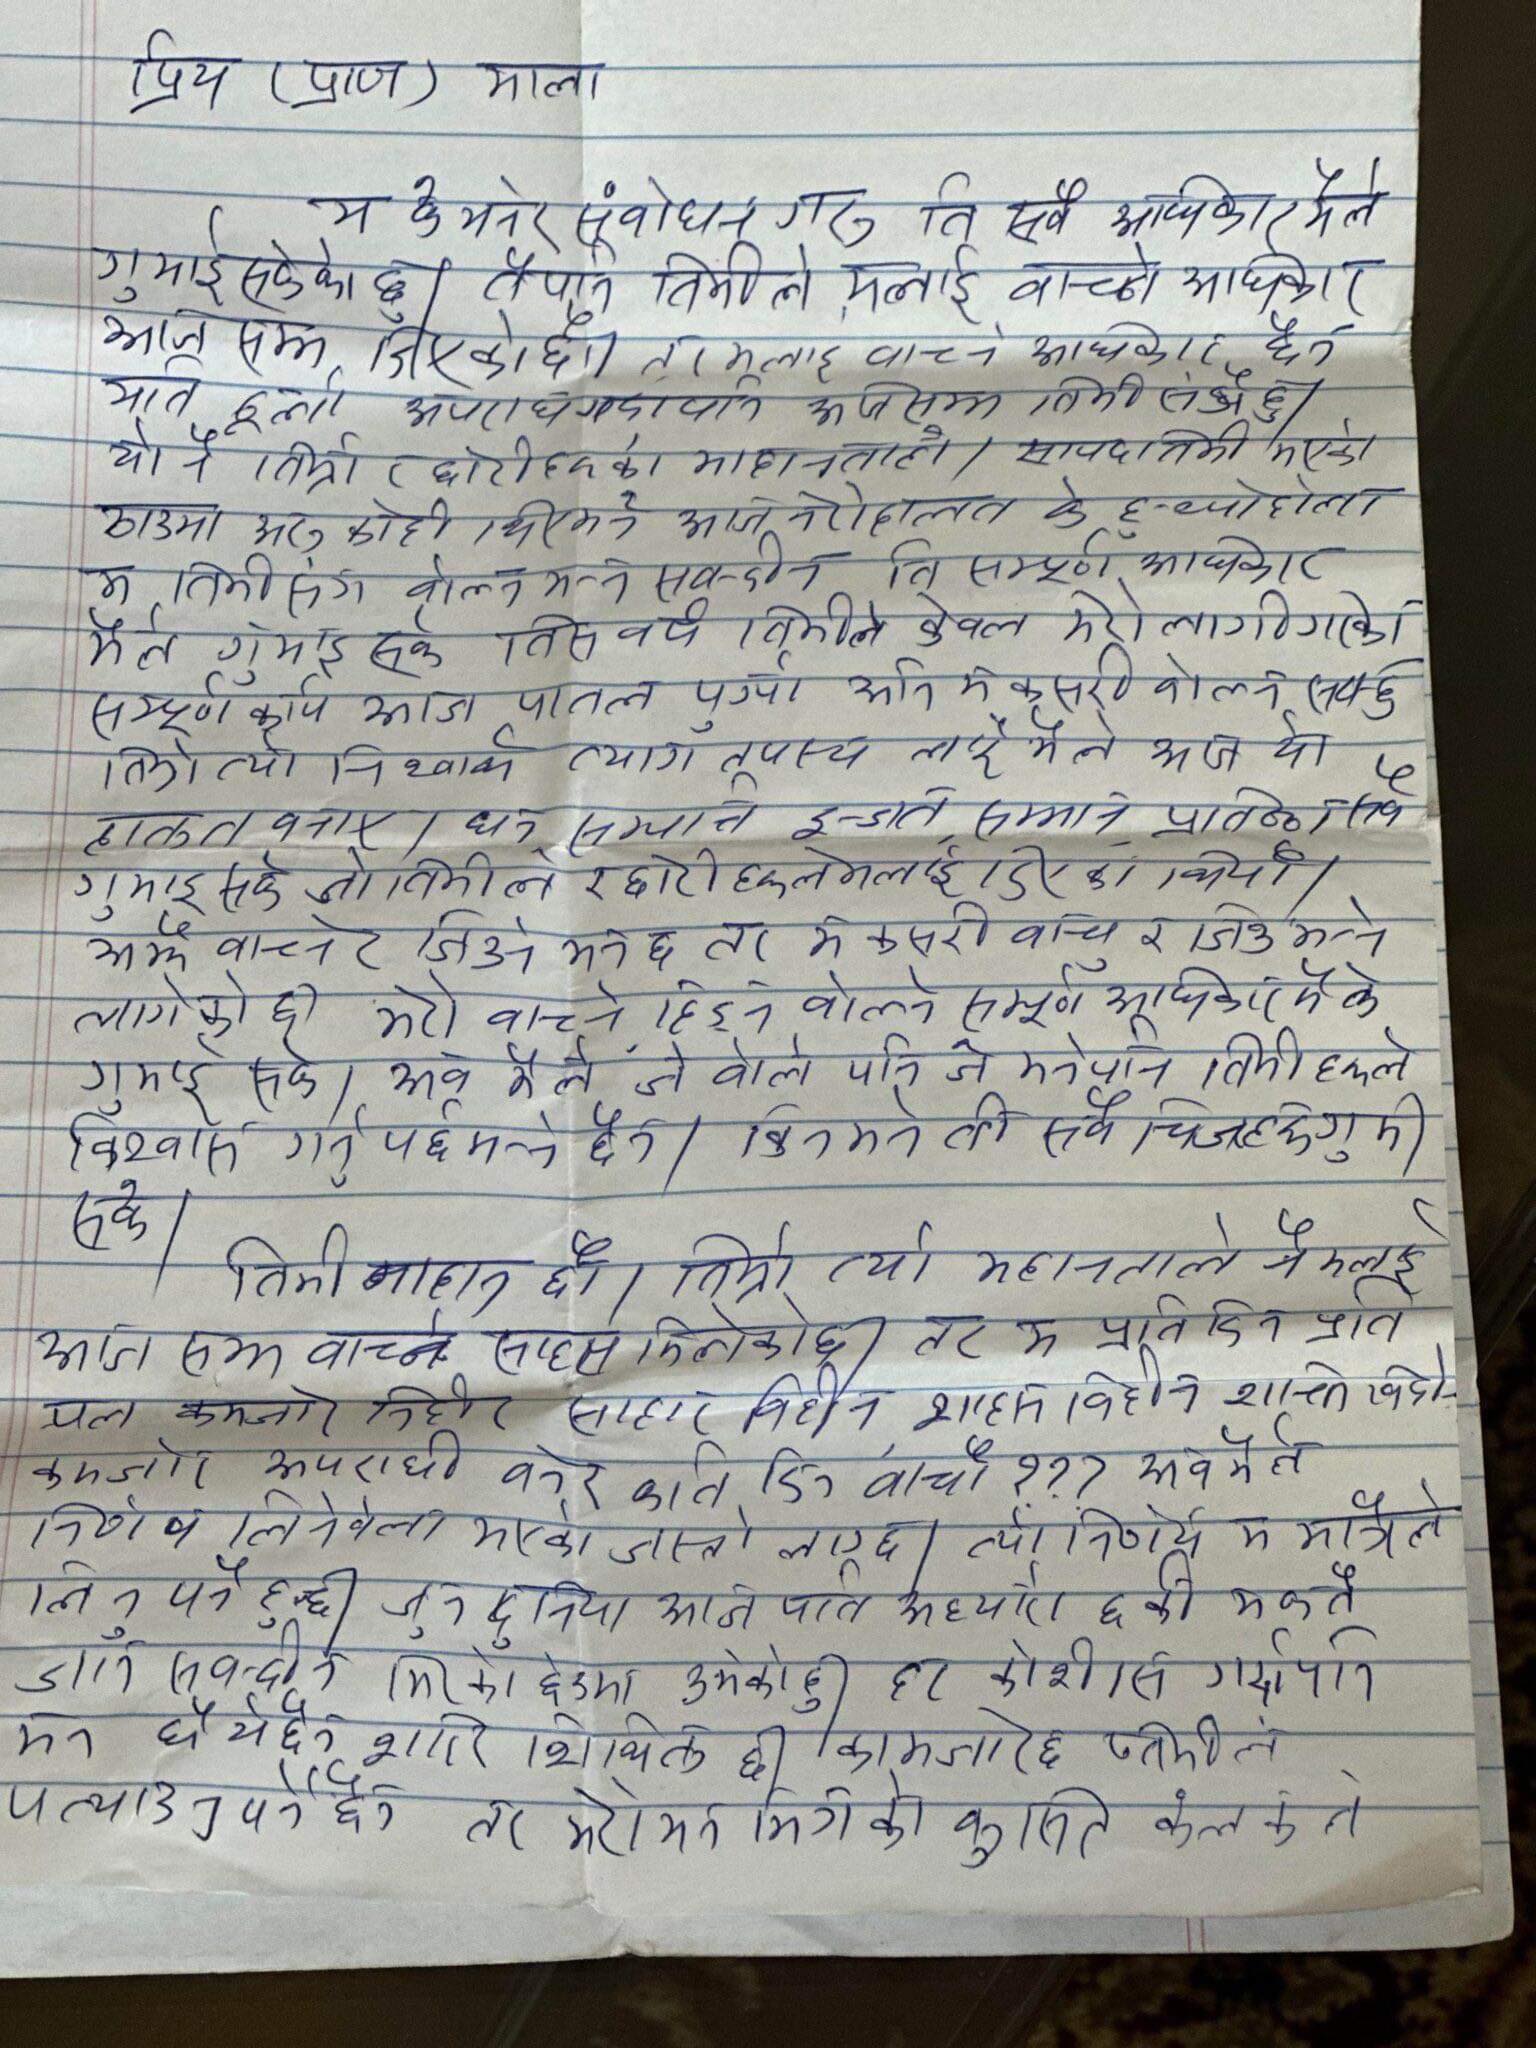 प्रिय (प्राण) माला
म के भनेर संवोधन गरु ति सवै अधिकार मैले
गुमाई सकेको छु। तैपनि तिमीले मलाई वाच्ने अधिकार
आज सम्म दिएको छौ। तर मलाइ वाच्न अधिकार छैन
यति ठुलो अपराध गर्दा पनि आज सम्म तिमी संगै छु।
यो नै तिम्रो र छोरीहरुको माहानता हो। सायद तिमी भएको
ठाउमा अरु कोही भएमने आज मेरो हालत के हुन्थ्यो होला
म तिमी संग वोल्न भन्न सक्दीन ति सम्पूर्ण अधिकार
मैले गुमाइ सके तिस वर्ष तिमीले केवल मेरो लागी गरेको
सम्पूर्ण कार्य आज पातल पुग्यो अनि म कसरी वोल्न सक्छु
तिम्रो त्यो निश्वार्थ त्याग तपस्य लाई मैले आज यो
हालत वनाए। धन सम्पत्ति इज्जत सम्मान प्रतिष्ठा सवै
गुमाइ सके जो तिमीले र छोरी हरुले मलाई दिएका थियौ।
अझै वाच्ने र जिउने मन छ तर म कसरी वाचु र जिउ भन्ने
लागेको छ। मेरो वाच्ने हिड्न वोल्ने सम्पूर्ण अधिकार मैले
गुमाई सके। अव मैले जे वोले पनि जे भने पनि तिमी हरुले
विश्वास गर्नु पर्छ भन्ने छैन। किन भने ती सवै चिजहरु गुमी
सके।
तिमी माहान छौ। तिम्रो त्यो महानताले नै मलाई
आज सम्म वाच्ने साहस मिलेको छ। तर म प्रति दिन प्रति
पल कमजोर निरीह साहार विहीन, शाहस विहीन शान्ति विहीन
कमजोर अपराधी वनेर कति दिन वाचौ ??? अव मैले
निर्णय लिने वेला भएको जास्तो लाग्छ। त्यो निर्णय म मात्रैले
लिनु पर्ने हुन्छ। जुन दुनिया आज पनि अध्यारो छ की म कतै
जान सक्दीन भिरको छेउमा उभेको छु। हर कोशीस गर्दा पनि
मन धैर्य छैन शरिर शिथिल छ। कामजोर छ तिमीले
पत्याउनु पर्ने छैन तर मेरो मन भित्रको कलंकले